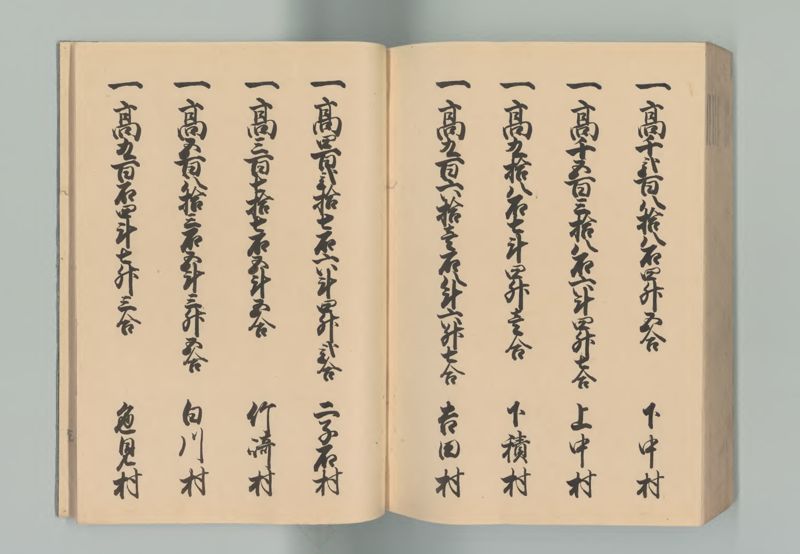 一高千弐百八拾八石四升五合 下中村
一高千五百三拾八石六斗四升七合 上中村
一高九拾八石七斗四升壱合 下積村
一高九百六拾壱石八斗六升七合 吉田村
一高四百弐拾七石六斗四升弐合 二子石村
一高三百七拾七石五斗五合 竹崎村
一高五百八拾三石五斗三升五合 白川村
一高九百石四斗七升三合 亀見村